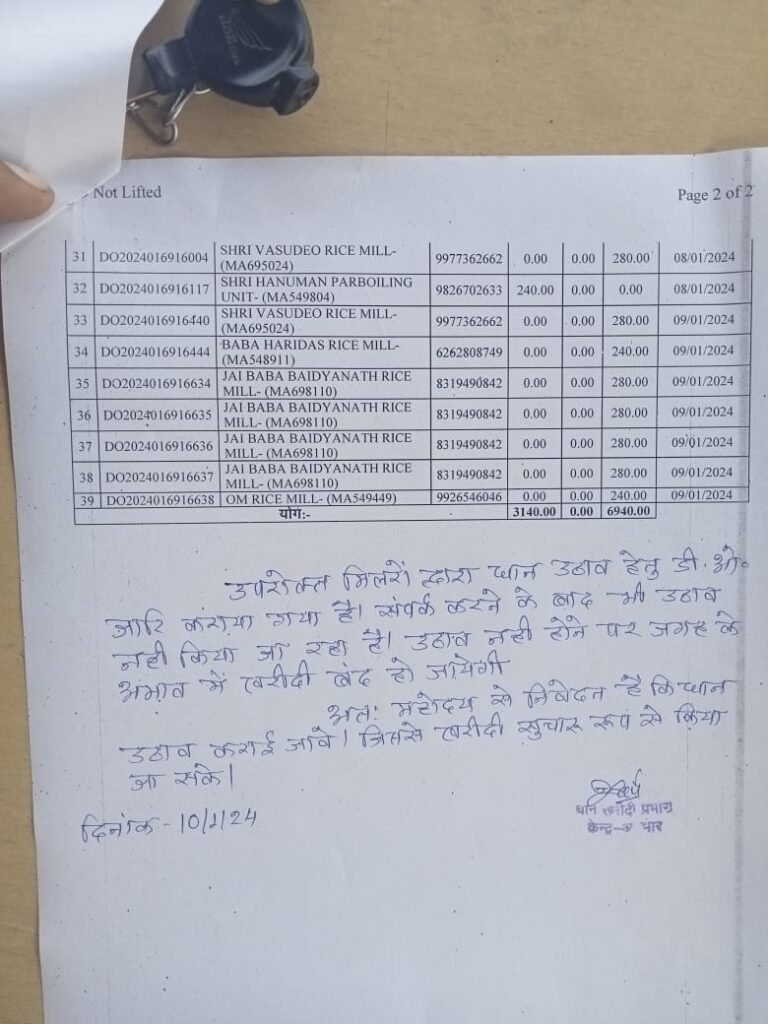 Not Lifted
Page 2 of 2
31 DO2024016916004 SHRI VASUDEO RICE MILL- (MA695024) 9977362662 0.00 0.00 280.00 08/01/2024
32 DO2024016916117 SHRI HANUMAN PARBOILING UNIT- (MA549804) 9826702633 240.00 0.00 0.00 08/01/2024
33 DO2024016916440 SHRI VASUDEO RICE MILL- (MA695024) 9977362662 0.00 0.00 280.00 09/01/2024
34 DO2024016916444 BABA HARIDAS RICE MILL- (MA548911) 6262808749 0.00 0.00 240.00 09/01/2024
35 DO2024016916634 JAI BABA BAIDYANATH RICE MILL- (MA698110) 8319490842 0.00 0.00 280.00 09/01/2024
36 DO2024016916635 JAI BABA BAIDYANATH RICE MILL- (MA698110) 8319490842 0.00 0.00 280.00 09/01/2024
37 DO2024016916636 JAI BABA BAIDYANATH RICE MILL- (MA698110) 8319490842 0.00 0.00 280.00 09/01/2024
38 DO2024016916637 JAI BABA BAIDYANATH RICE MILL- (MA698110) 8319490842 0.00 0.00 280.00 09/01/2024
39 DO2024016916638 OM RICE MILL- (MA549449) 9926546046 0.00 0.00 240.00 09/01/2024
योग:- 3140.00 0.00 6940.00
उपरोक्त मिलरों द्वारा धान उठाव हेतु डी.ओ.
जारि कराया गया है। संपर्क करने के बाद भी उठाव
नही किया जा रहा है। उठाव नही होने पर जगह के
अभाव में खरीदी बंद हो जायेगी
अत: महोदय से निवेदन है कि धान
उठाव कराई जावे। जिससे खरीदी सुचारू रूप से किया
जा सके।
दिनांक - 10/1/24
धान खरीदी प्रभारी
केन्द्र-